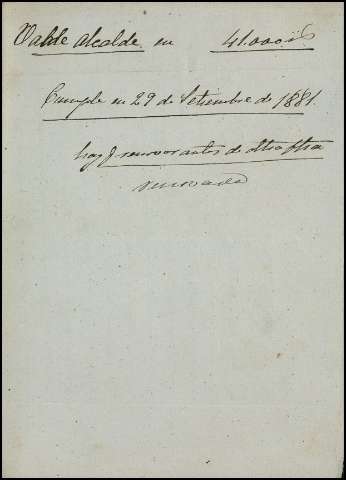 Valde alcalde en 41.000 
Cumple en 29 de Setiembre de 1881.
hay q renovar antes de dha fha
renovada